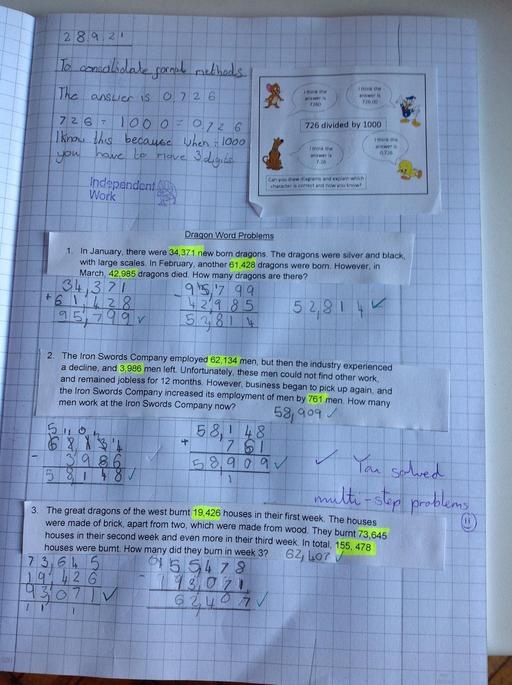 28.9.21
To consolidate formal methods.
The answer is 0.726
726 ÷ 1000 = 0.726
I know this because when ÷ 1000
you have to move 3 digits
Independent
Work
I think the
answer is
7260
I think the
answer is
726.00
726 divided by 1000
I think the
answer is
7.26
I think the
answer is
0.726
Can you draw diagrams and explain which
character is correct and how you know?
Dragon Word Problems
1. In January, there were 34,371 new born dragons. The dragons were silver and black,
with large scales. In February, another 61,428 dragons were born. However, in
March, 42,985 dragons died. How many dragons are there?
34,371
+61,428
95,799
- 42,985
52,814
52,814
2. The Iron Swords Company employed 62,134 men, but then the industry experienced
a decline, and 3,986 men left. Unfortunately, these men could not find other work,
and remained jobless for 12 months. However, business began to pick up again, and
the Iron Swords Company increased its employment of men by 761 men. How many
men work at the Iron Swords Company now?
58,909
- 3986
58148
58,148
+ 761
58,909
1
You solved
multi-step problems
3. The great dragons of the west burnt 19,426 houses in their first week. The houses
were made of brick, apart from two, which were made from wood. They burnt 73,645
houses in their second week and even more in their third week. In total, 155, 478
houses were burnt. How many did they burn in week 3?
62,407
73,645
19,426
93,071
1 1 1
155478
- 93,071
62,407